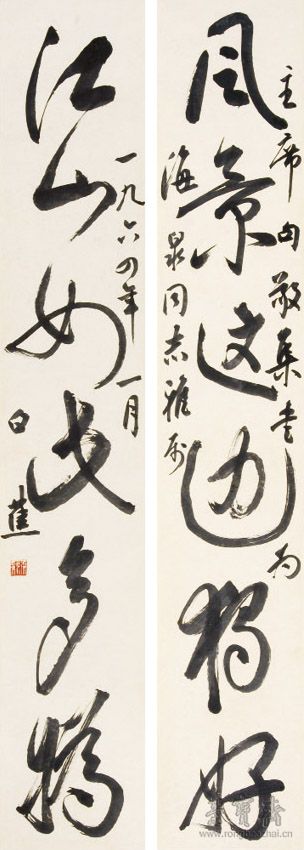 风景这边独好
主席句敬集书为
海泉同志雅属
江山如此多娇
一九六四年一月
白蕉
榮寶齋
www.rongbaozhai.cn